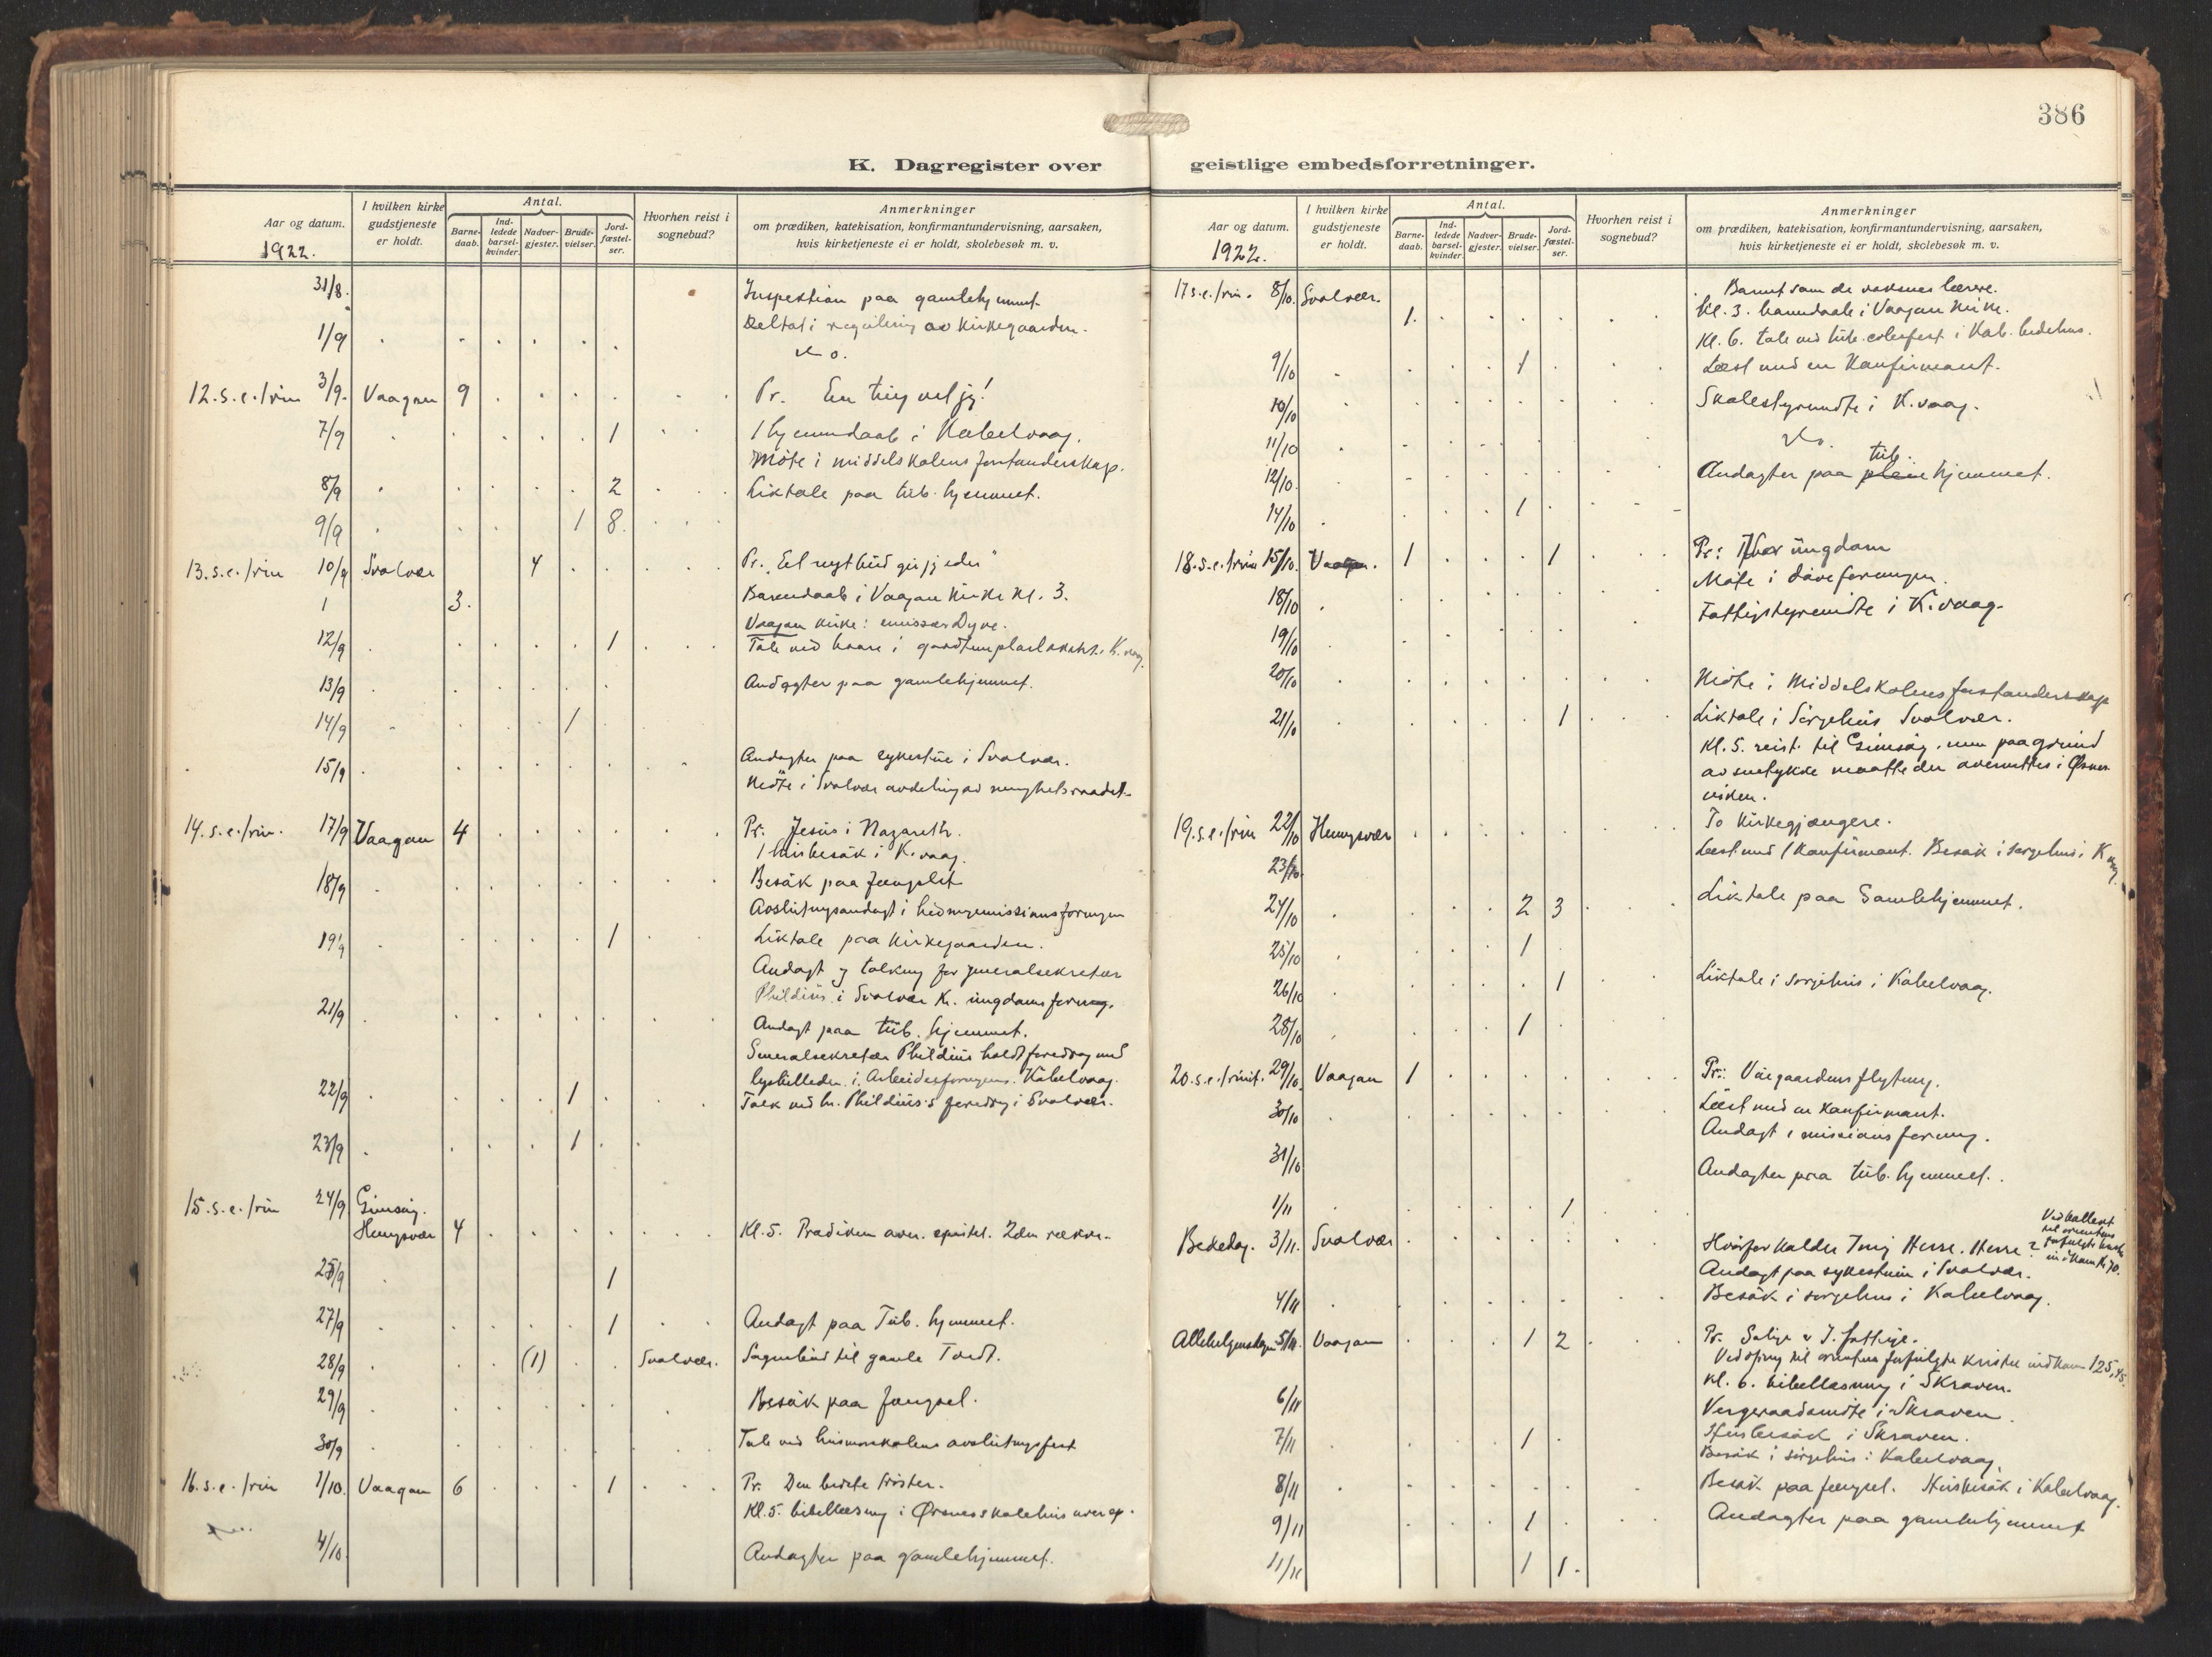 386
K. Dagregister over
Aar og datum.
1922.
I hvilken kirke gudstjeneste er holdt.
Antal.
Barne-daab.
Ind-ledede barsel-kvinder.
Nadver-gjester.
Brude-vielser.
Jord-fæstel-ser.
Hvorhen reist i sognebud?
Anmerkninger
om prædiken, katekisation, konfirmantundervisning, aarsaken,
hvis kirketjeneste ei er holdt, skolebesøk m. v.
31/8. Inspektion paa gamlehjemmet.
1/9 Deltat i regulering av kirkegaarden.
do.
12. s. e. trin 3/9. Vaagan 9 Pr. En ting vet jeg!
7/9 1 1 hjemmedaab i Kabelvaag.
Møte i middelskolens forstanderskap.
8/9 2 Liktale paa tub. hjemmet.
9/9 1 8.
13. s. e. trin 10/9 Svolvær 4 Pr. "Et nyt bud gir jeg eder"
3. Barnedaab i Vaagan kirke kl. 3.
Vaagan kirke: emissær Dyve.
12/9 1 Tale ved baare i godtemplarlokalet. K.vaag.
13/9 Andagter paa gamlehjemmet.
14/9 1
15/9 Andagter paa sykestue i Svolvær.
Møte i Svolvær avdeling av menighetsraadet.
14. s. e. trin. 17/9 Vaagan 4 Pr. Jesus i Nazareth.
1 husbesøk i K.vaag.
18/9 Besøk paa fængslet
Avslutningsandagt i hedningemissionsforeningen
19/9 1 Liktale paa kirkegaarden.
Andagt og tolkning for generalsekretær
Phildius i Svolvær Kr. ungdomsforening.
21/9 Andagt paa tub. hjemmet.
Generalsekretær Phildius holdt foredrag med
lysbilleder i Arbeidesforeningens. Kabelvaag.
22/9 1 Tolk ved hr. Phildius's foredrag i Svolvær.
23/9 1
15. s. e. trin 24/9 Gimsøy.
Henngsvær 4 Kl. 5. Prædiken over epistel. 2den række.
25/9 1
27/9 1 Andagt paa Tub. hjemmet.
28/9 (1) Svolvær. Sognebud til gamle
29/9 Besøk paa fængsel.
30/9 Tale ved husmorskolens avslutningsfest
16. s. e. trin 1/10. Vaagan 6 1 Pr. Den bedste trøster.
Kl. 5. bibellæsning i Ørsnes skolehus over ep.
4/10. Andagter paa gamlehjemmet.
geistlige embedsforretninger.
Aar og datum.
1922.
I hvilken kirke gudstjeneste er holdt.
Antal.
Barne-daab.
Ind-ledede barsel-kvinder.
Nadver-gjester.
Brude-vielser.
Jord-fæstel-ser.
Hvorhen reist i sognebud?
Anmerkninger
om prædiken, katekisation, konfirmantundervisning, aarsaken,
hvis kirketjeneste ei er holdt, skolebesøk m. v.
17 s. e. trin. 8/10. Svolvær. Barnet som de voksnes lærere.
1. Kl. 3. barnedaab i Vaagan kirke.
Kl. 6. tale ved tub. fest i Kab. bedehus.
9/10 1 Læst med en konfirmant.
10/10 Skolestyremøte i K.vaag.
11/10 do.
12/10. Andagter paa tub. hjemmet.
14/10 1
18. s. e. trin 15/10. Vaagan. 1 1 Pr: Vor ungdom
18/10 Møte i døveforeningen.
Fattigstyremøte i K.vaag.
19/10
20/10 Møte i Middelskolens forstanderskap
21/10 1 Liktale i sørgehus Svolvær.
Kl. 5. reist til Gimsøy, men paa grund
av snetykke maatte der overnattes i Ørsnes-
viken.
19. s. e. trin 22/10 Henngsvær To kirkegjængere.
23/10 Læst med 1 konfirmant. Besøk i sørgehus i K.vaag.
24/10 2 3 Liktale paa Gamlehjemmet.
25/10 1
26/10 1 Liktale i sørgehus i Kabelvaag.
28/10 1
20. s. e. trinit. 29/10. Vaagan 1 Pr.: Viegaardens flytning.
30/10 Læst med en konfirmant.
Andagt i missionsforening.
31/10 Andagter paa tub. hjemmet.
1/11 1
Bededag. 3/11. Svolvær Hvorfor kalder I mig Herre, Herre?
Andagt paa sykestuen i Svolvær.
4/11 Besøk i sørgehus i Kabelvaag.
Allehelgensdagen 5/11. Vaagan 1 2 Pr. Salige er I fattige.
Ved ofring til orientens forfulgte kristne indkom 125,45.
Kl. 6. bibellæsning i Skraaven.
6/11 Vergeraadsmøte i Skraaven.
7/11 1 Husbesøk i Skraaven.
Besøk i sørgehus i Kabelvaag.
8/11 Besøk paa fængsel. Husbesøk i Kabelvaag.
9/11 1 Andagter paa gamlehjemmet
11/11 1 1.